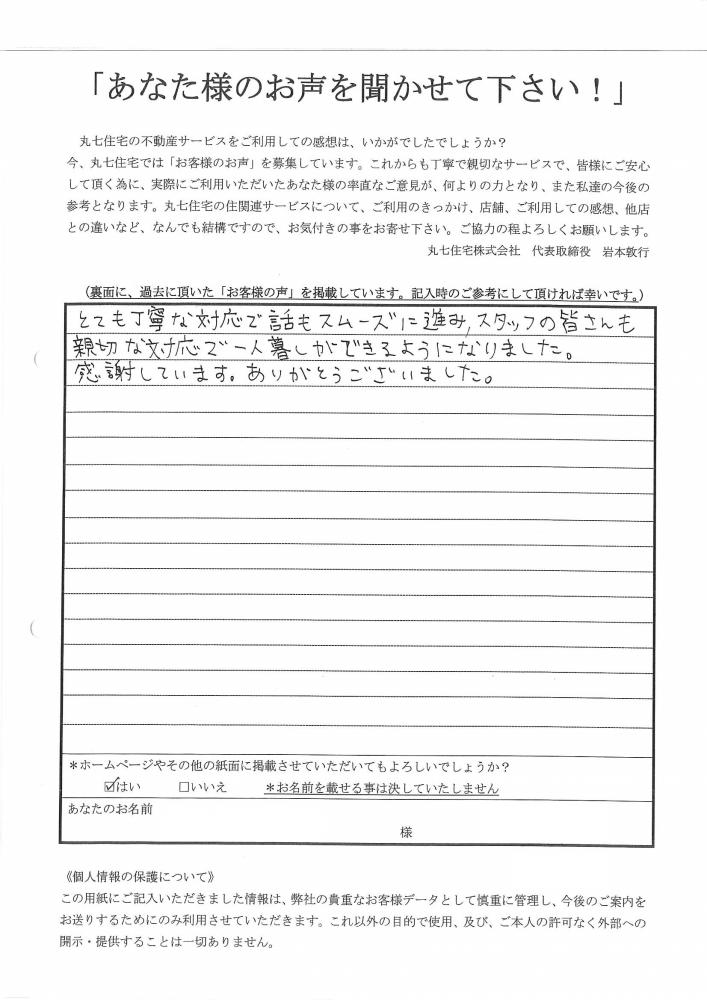 「あなた様のお声を聞かせて下さい！」
丸七住宅の不動産サービスをご利用しての感想は、いかがでしたでしょうか？
今、丸七住宅では「お客様のお声」を募集しています。これからも丁寧で親切なサービスで、皆様にご安心
して頂く為に、実際にご利用いただいたあなた様の率直なご意見が、何よりの力となり、また私達の今後の
参考となります。丸七住宅の住関連サービスについて、ご利用のきっかけ、店舗、ご利用しての感想、他店
との違いなど、なんでも結構ですので、お気付きの事をお寄せ下さい。ご協力の程よろしくお願いします。
丸七住宅株式会社　代表取締役　岩本敦行
（裏面に、過去に頂いた「お客様の声」を掲載しています。記入時のご参考にして頂ければ幸いです。）
とても丁寧な対応で話もスムーズに進み,スタッフの皆さんも
親切な対応で一人暮しができるようになりました。
感謝しています。ありがとうございました。
＊ホームページやその他の紙面に掲載させていただいてもよろしいでしょうか？
☑はい　□いいえ　＊お名前を載せる事は決していたしません
あなたのお名前
様
《個人情報の保護について》
この用紙にご記入いただきました情報は、弊社の貴重なお客様データとして慎重に管理し、今後のご案内を
お送りするためにのみ利用させていただきます。これ以外の目的で使用、及び、ご本人の許可なく外部への
開示・提供することは一切ありません。